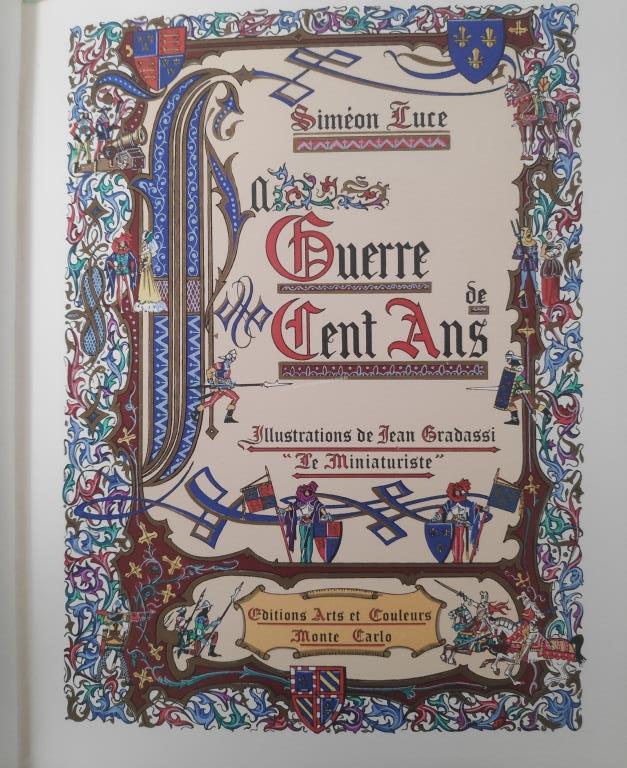 Siméon Luce
La
Guerre
de
Cent Ans
Illustrations de Jean Gradassi
"Le Miniaturiste"
Editions Arts et Couleurs
Monte Carlo